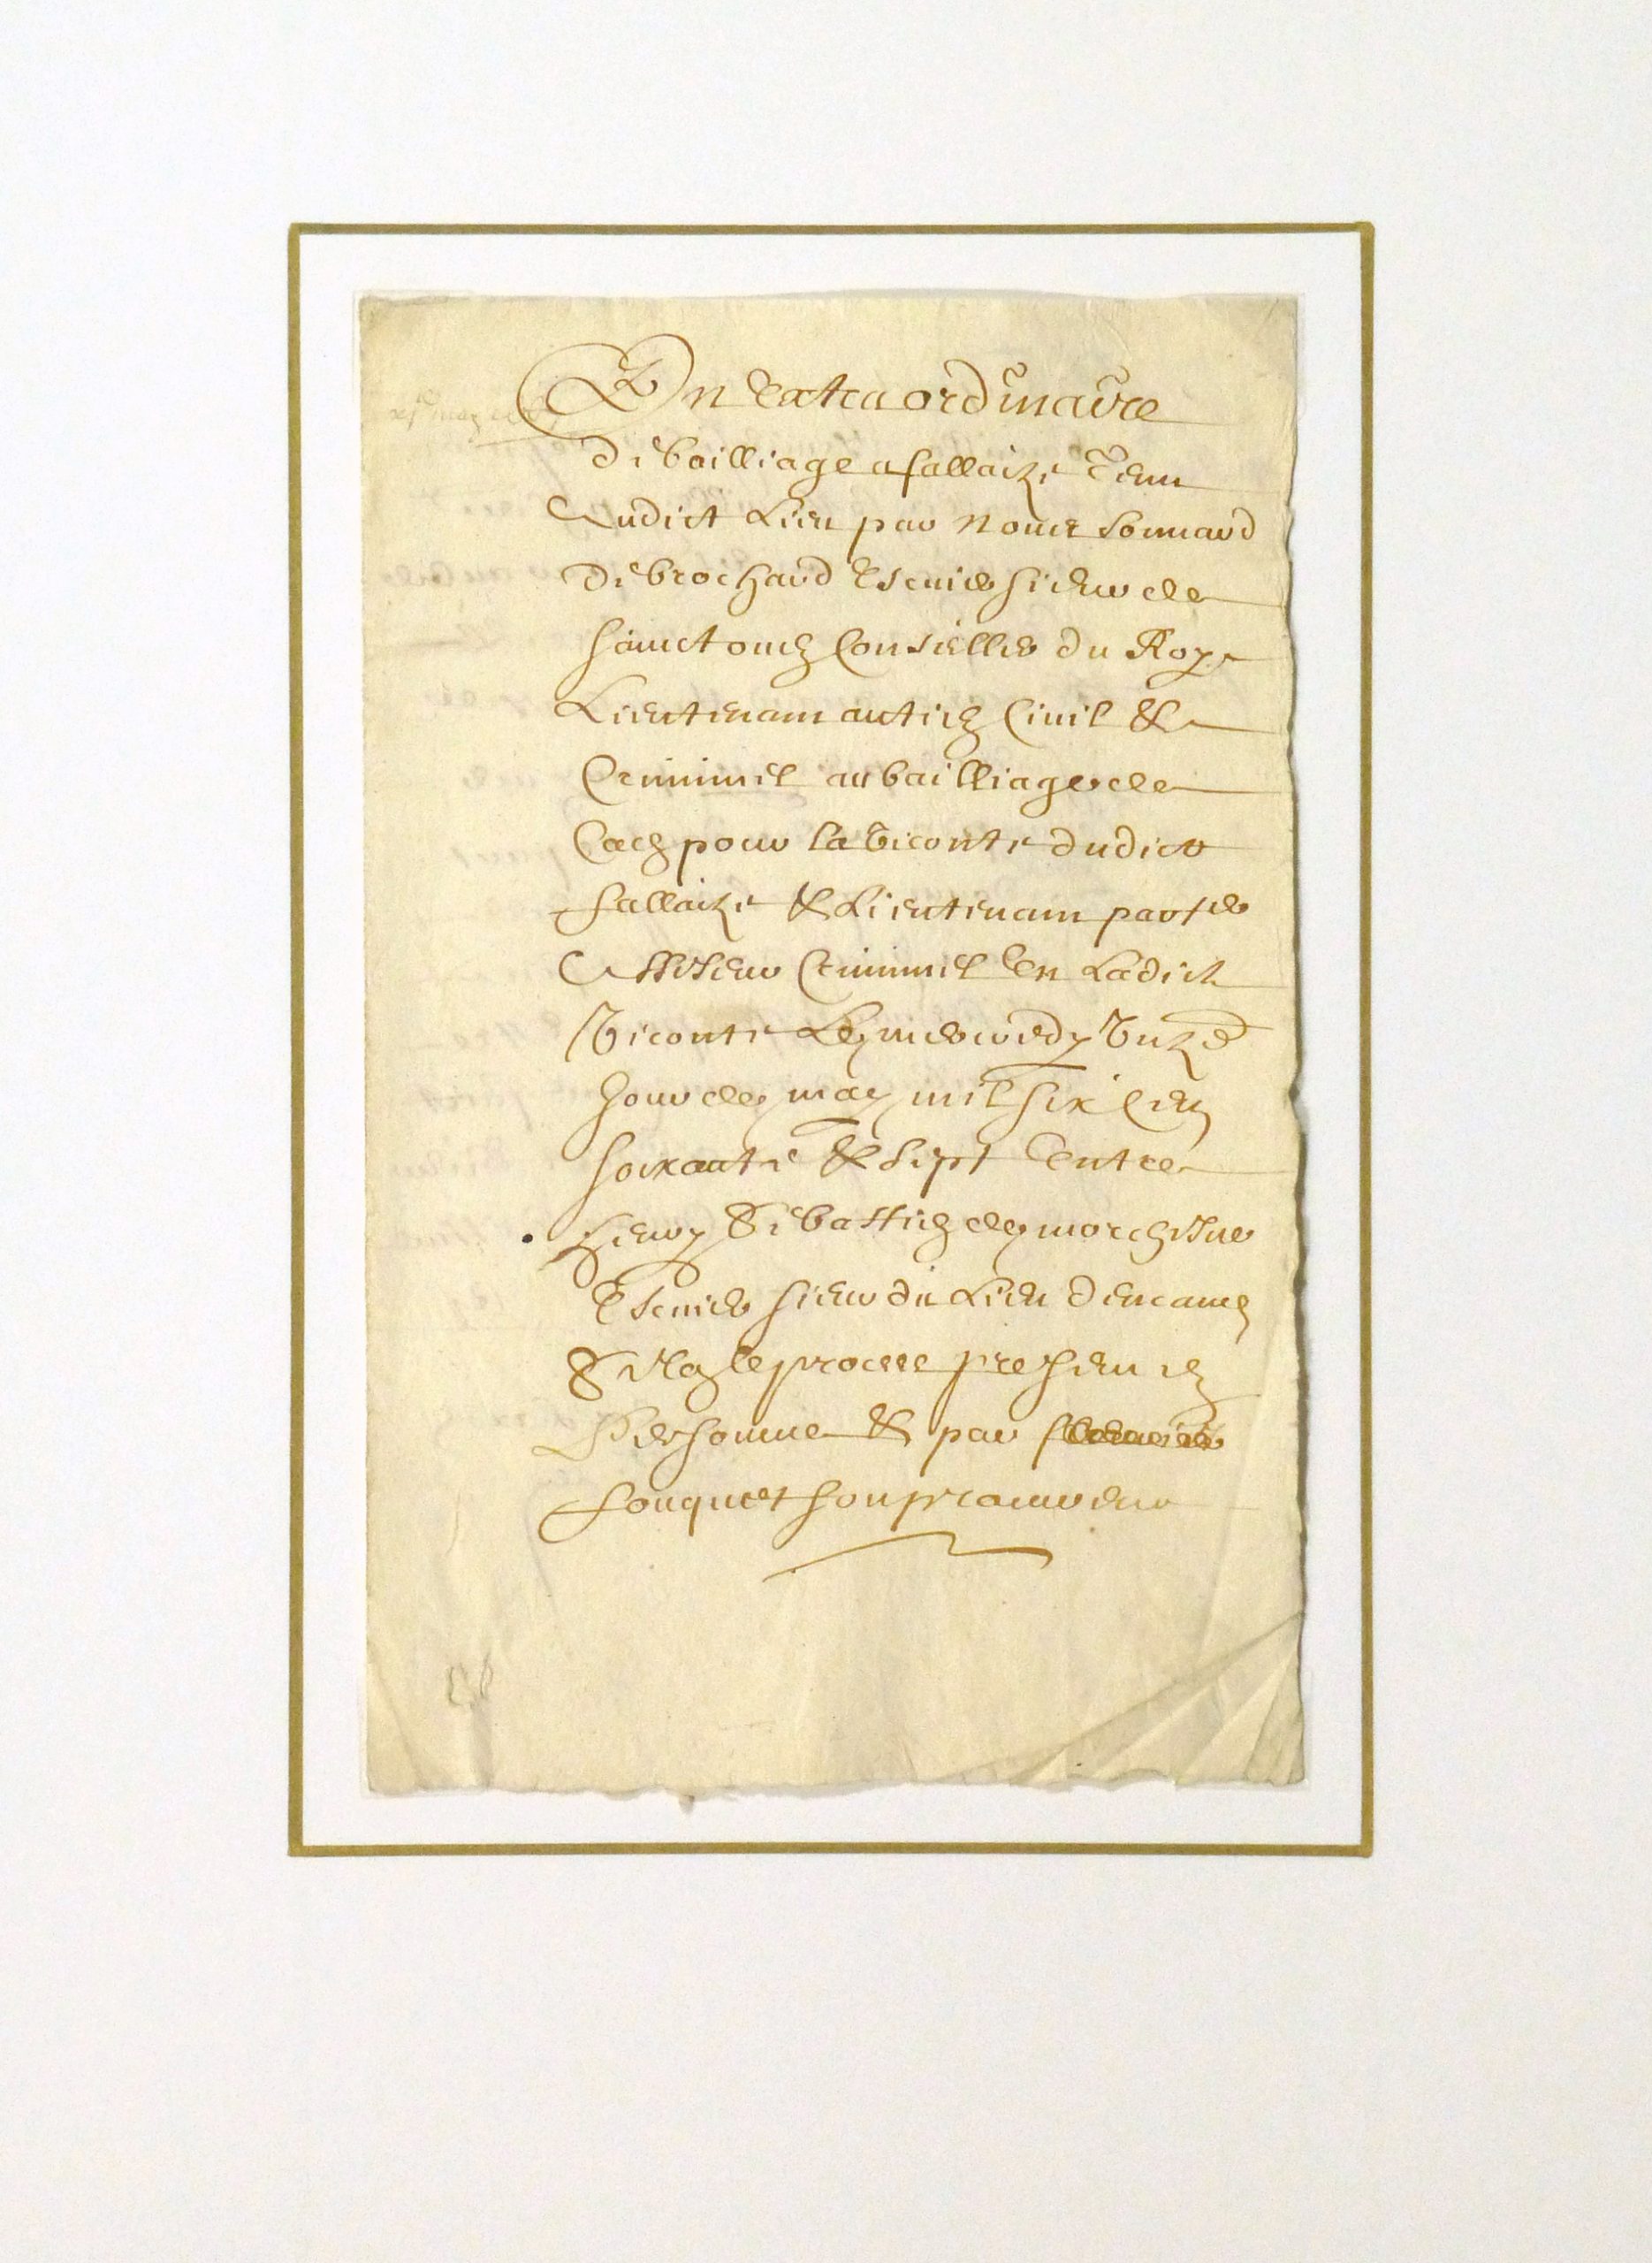 En Lextraordinaire
de bailliage a fallaize Tenu
Audict Lieu par Nous
de brochard Escuier sieur de
sainct ouen Conseiller du Roy
Lieutenant antien Civil &
Criminel au bailliage de
Caen pour la viconte dudict
fallaize & Lieutenant par
Criminel En Ladicte
Viconte Le mercredy Unze
Jour de may mil six Cens
soixante & sept Entre
henry Sebastien de
Escuier sieur du Lieu
le present en
Personne & par
fouquet son procureur